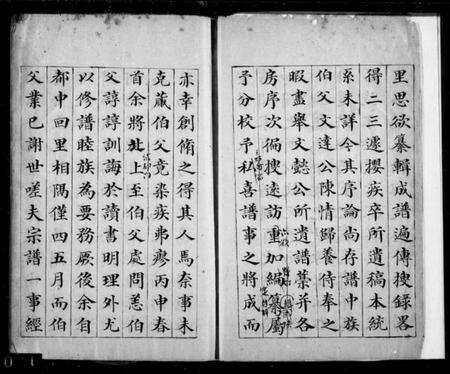 里思欲纂輯成譜遍傳搜録畧
得二三遽攖疾卒所遺稿本統
系未詳今其序論尚存譜中族
伯父文達公陳情歸養侍奉之
暇盡舉文懿公所遺譜藁并各
房序次徧搜遠訪重加編纂屬
予分校予私喜譜事之將成而
亦幸創修之得其人焉奈事未
克蕆伯父竟染疾弗瘳丙申春
首余將北上至伯父處問恙伯
父諄諄訓誨於讀書明理外尤
以修譜睦族為要務厥後余自
都中回里相隔僅四五月而伯
父業已謝世嗟夫宗譜一事經